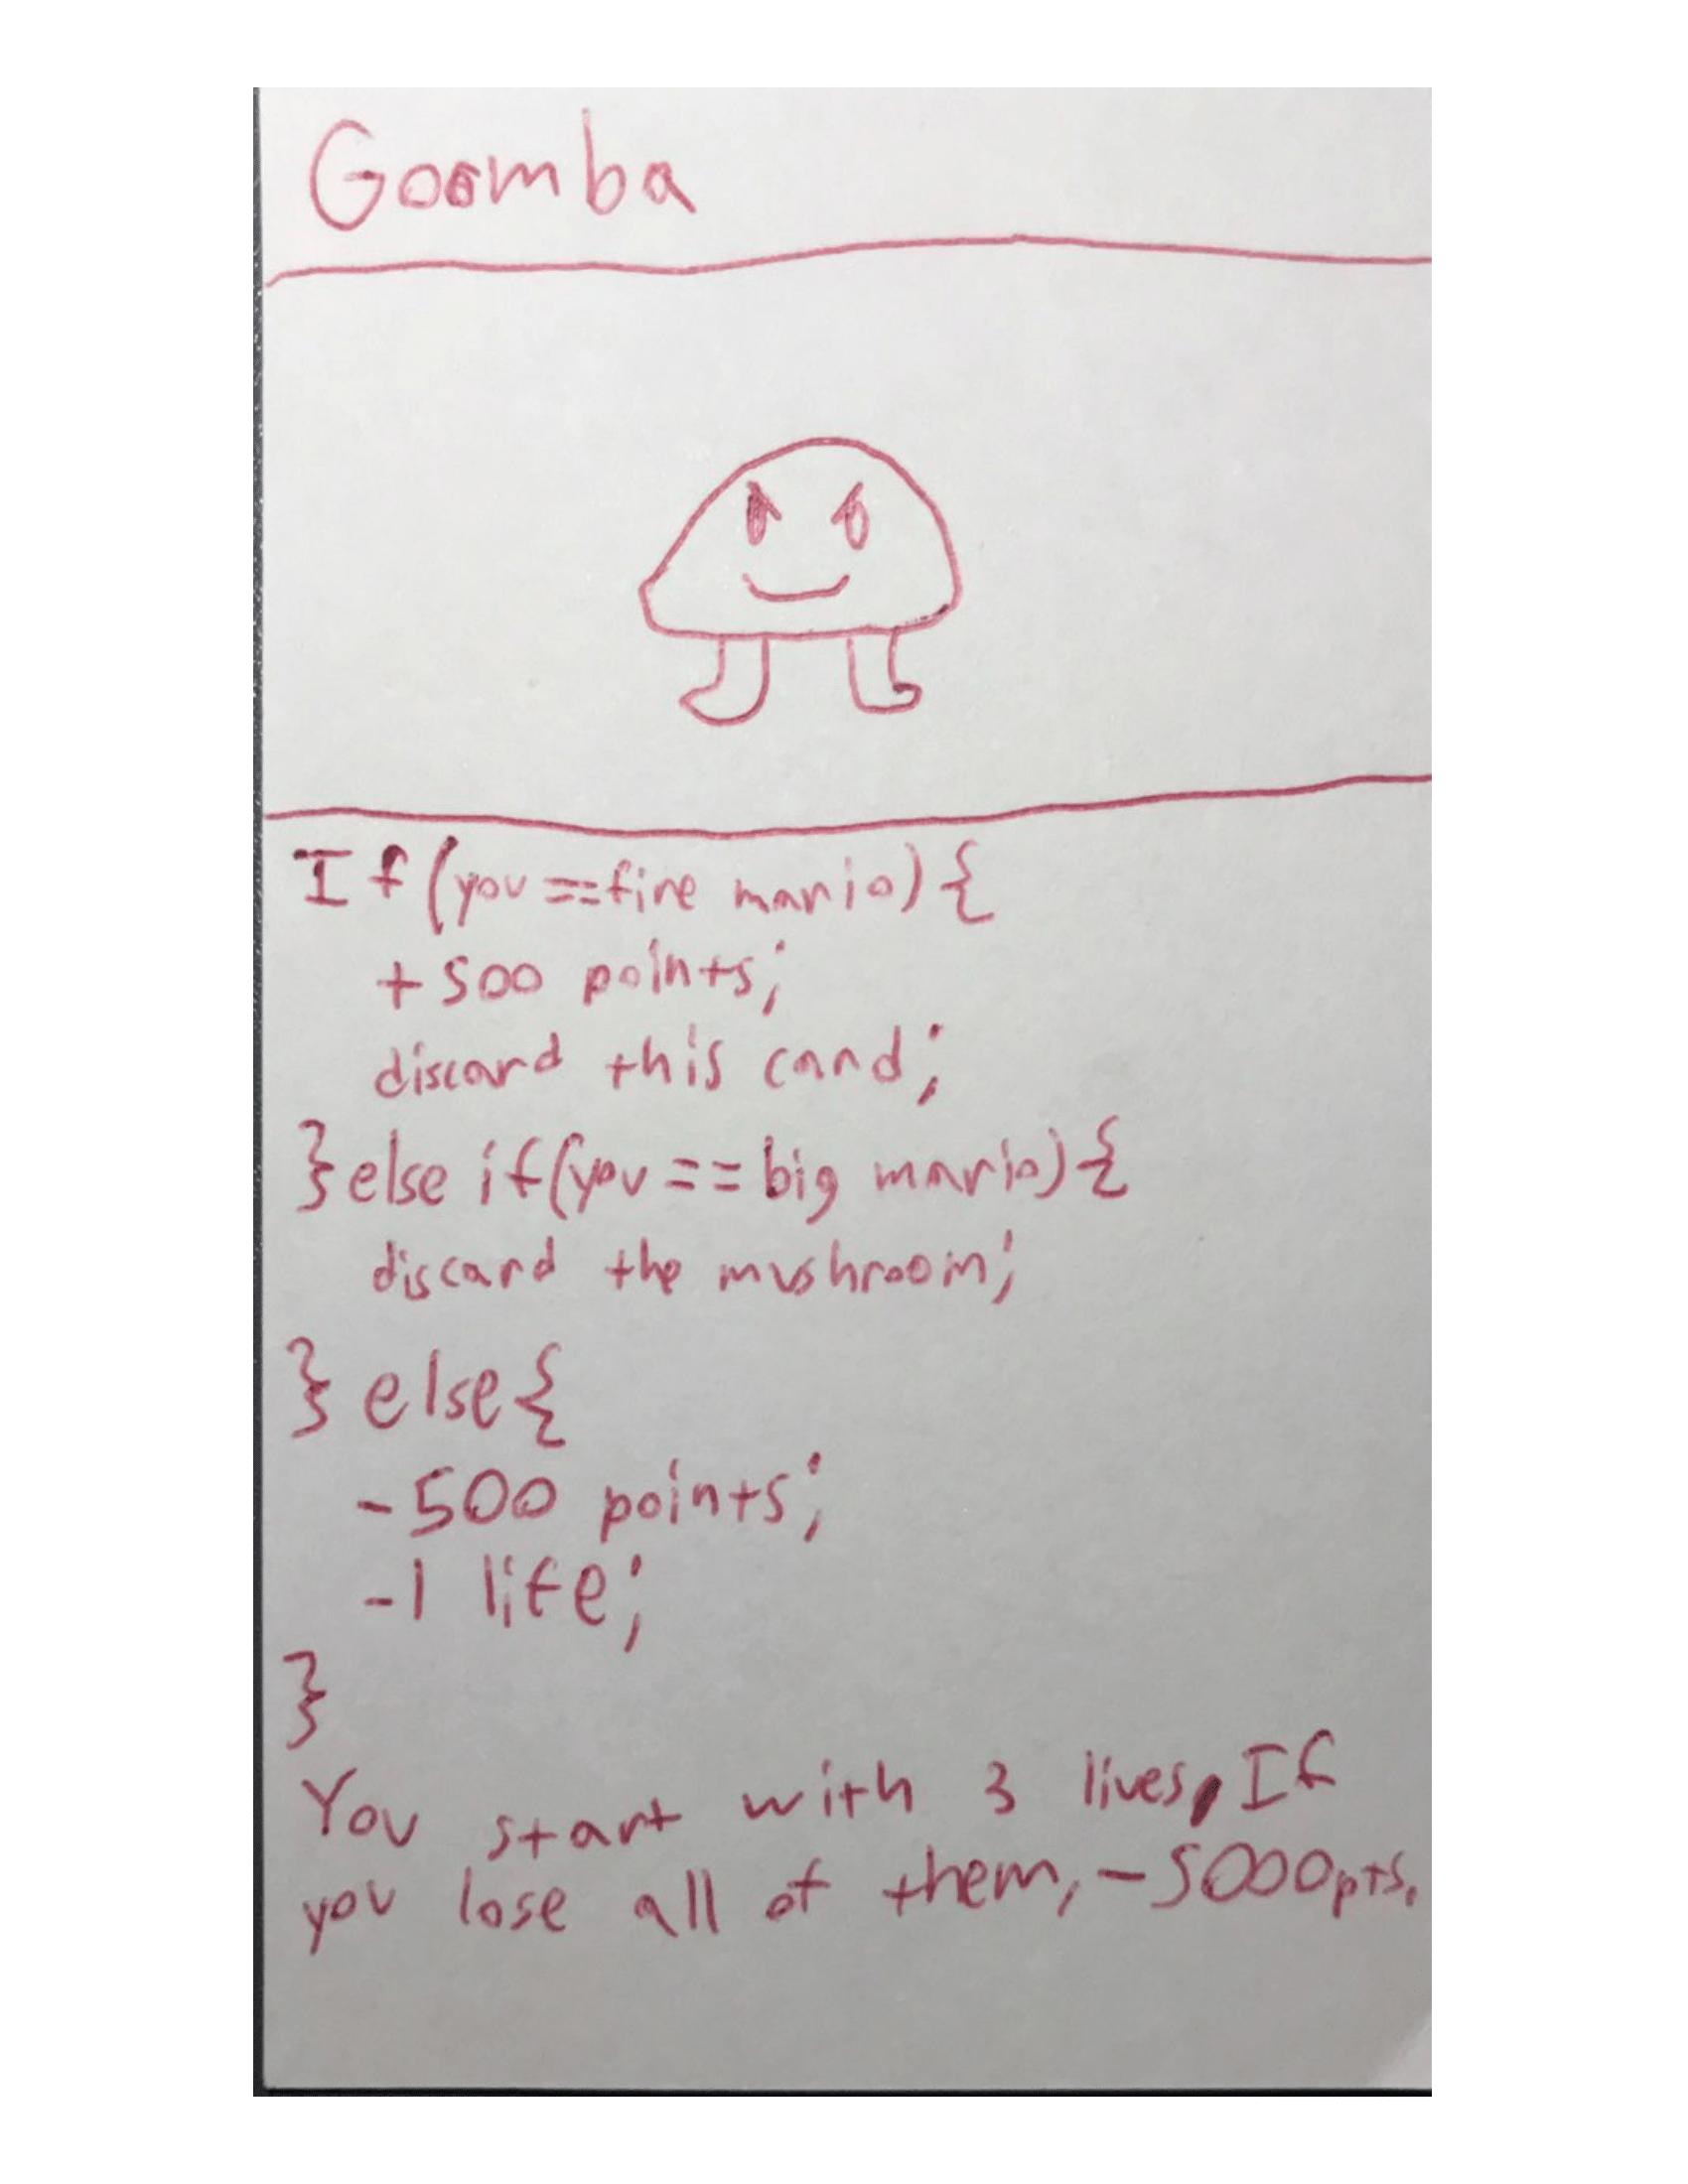 Goomba
If (you == fire mario) {
+500 points;
discard this card;
} else if (you == big mario) {
discard the mushroom;
} else {
-500 points;
-1 life;
}
You start with 3 lives, If
you lose all of them, -5000pts.